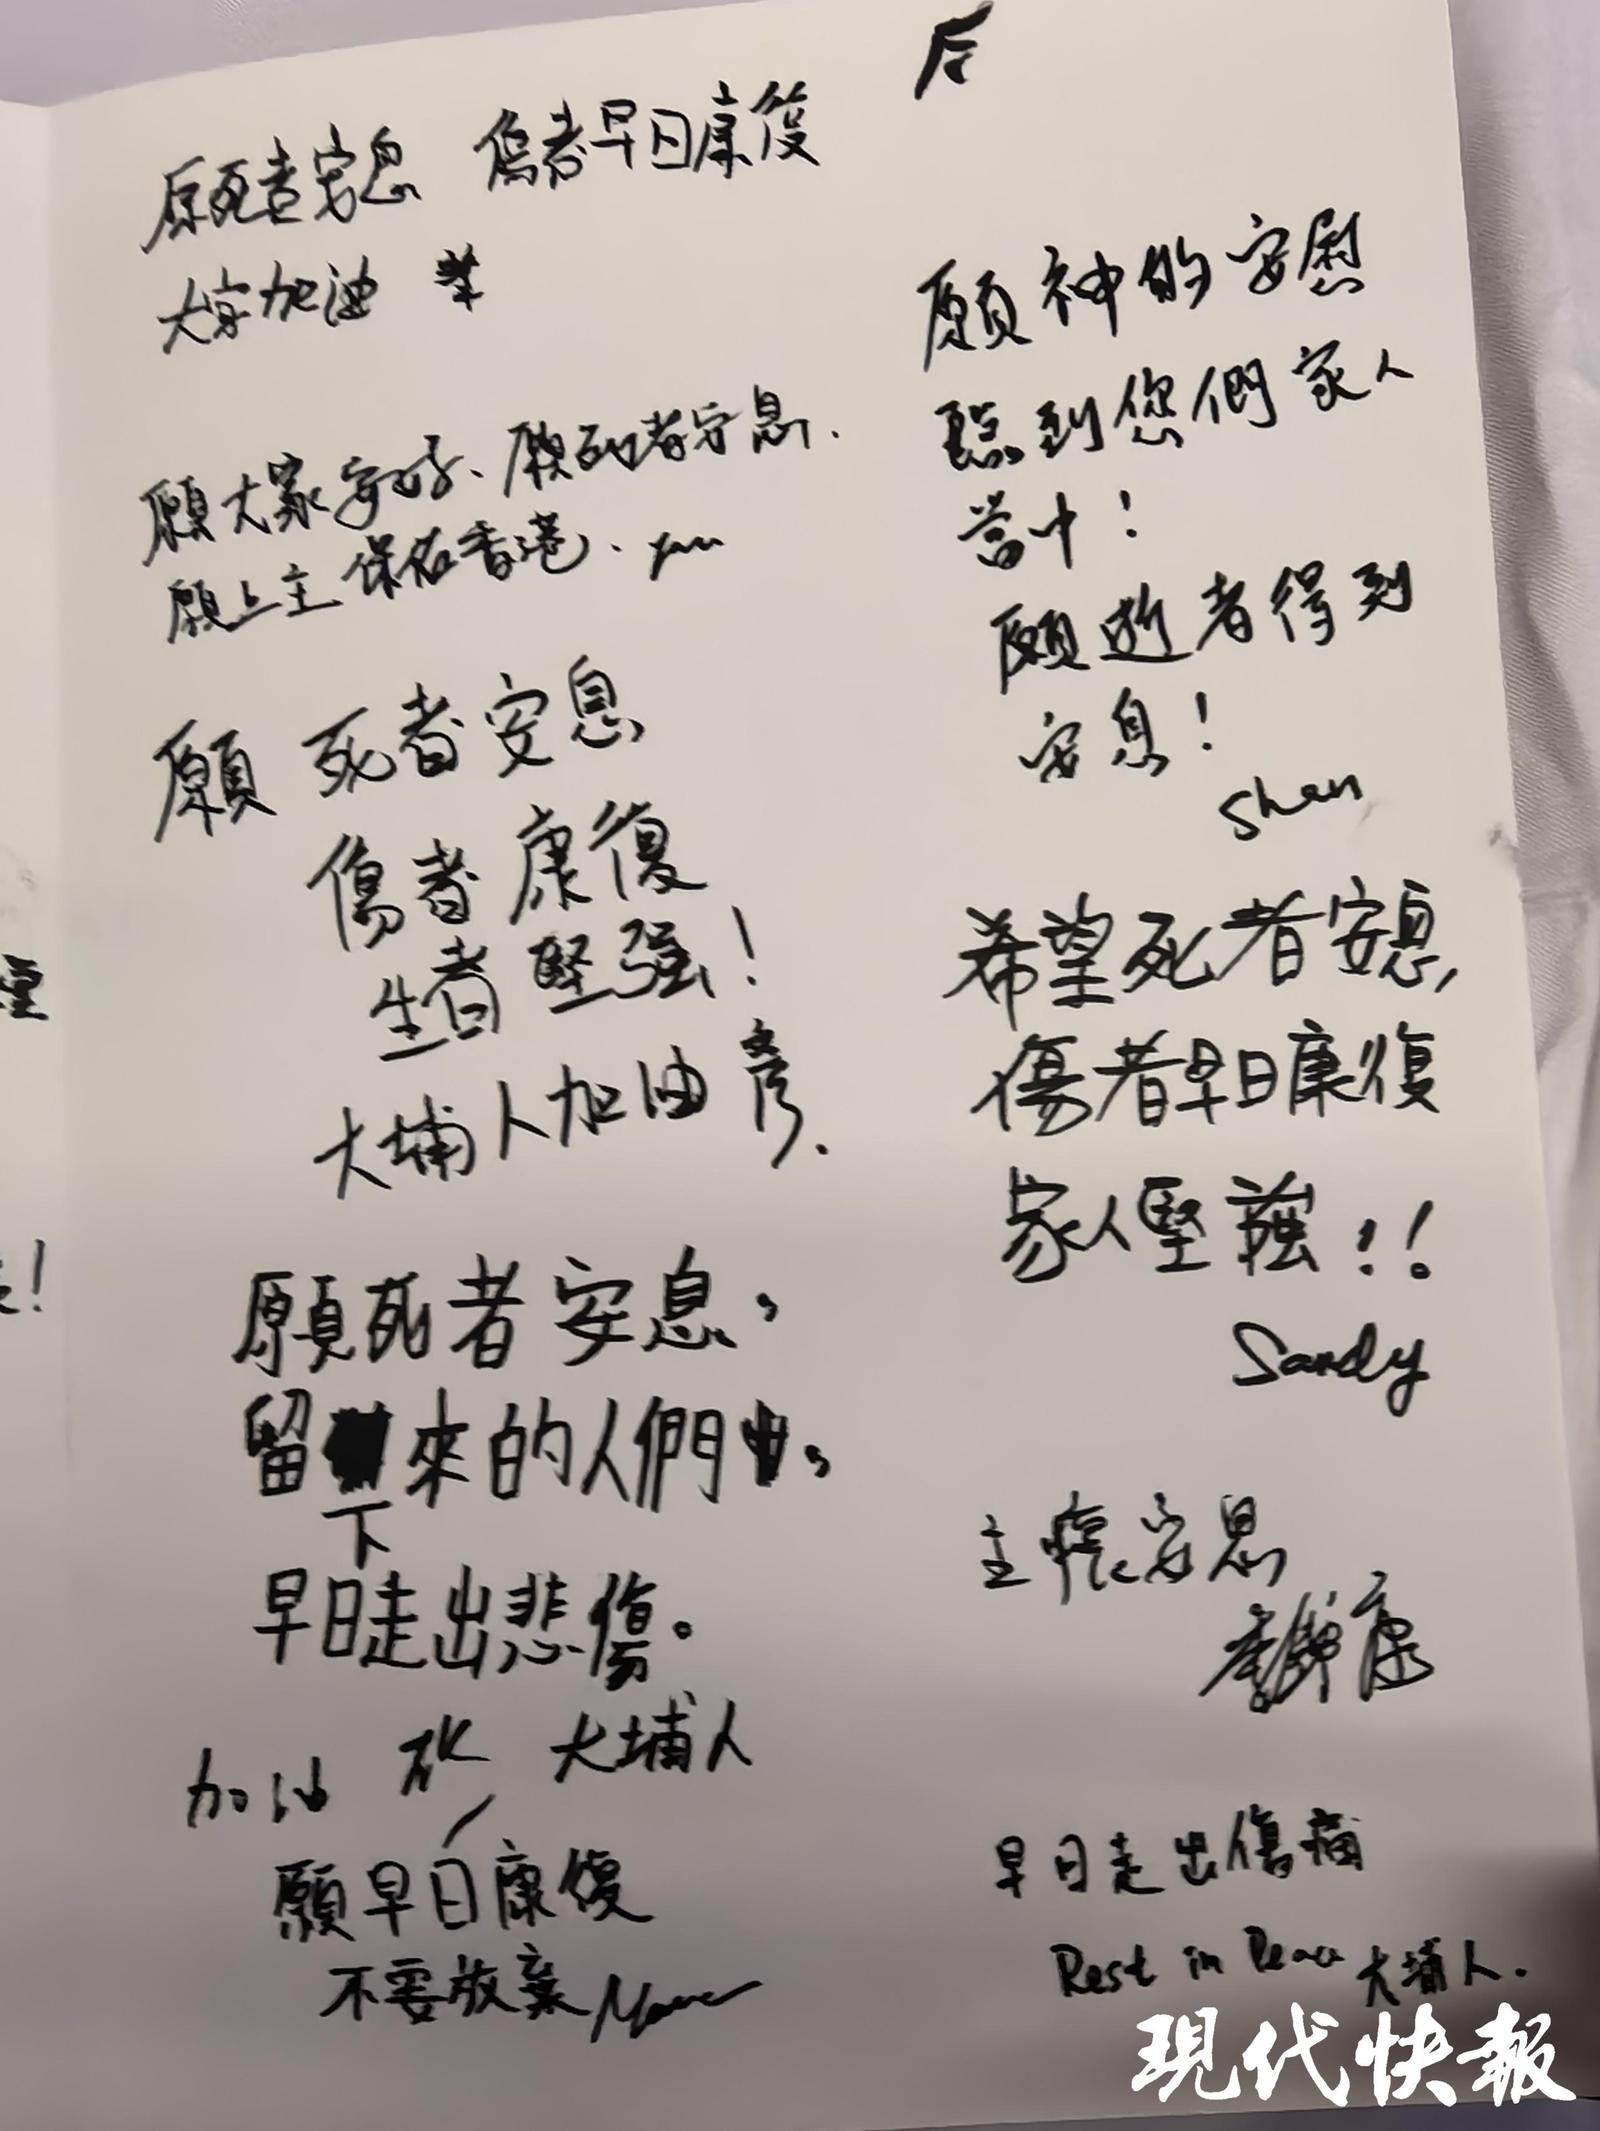 原死者安息 傷者早日康復
大家加油
願大家安好、願死者安息.
願上主保佑香港、
願 死者安息
傷者康復
生者堅強!
大埔人加油 彥.
願死者安息,
留下來的人們,
早日走出悲傷。
加油 大埔人
願早日康復
不要放棄
願神的安慰
臨到您們家人
當中!
願逝者得到
安息!
Shan
希望死者安息,
傷者早日康復
家人堅強!!
Sandy
主懷安息
早日走出傷痛
Rest in Peace 大埔人.
現代快報